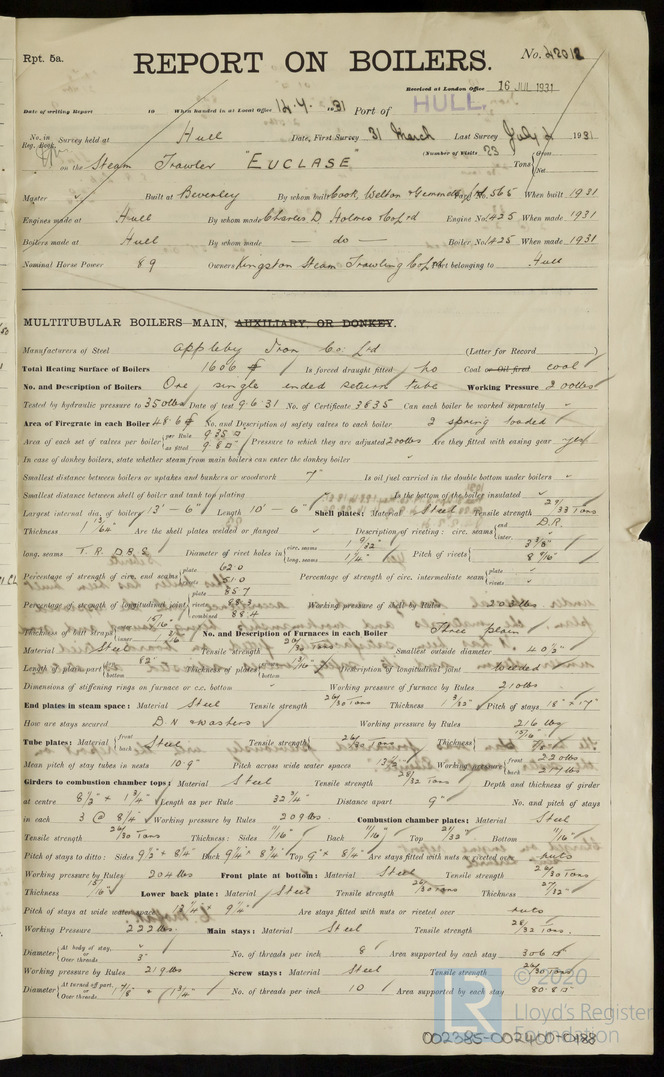 Rpt. 5a.
REPORT ON BOILERS.
No. 42012
Received at London Office 16 JUL 1931
Date of writing Report 19 When handed in at Local Office 14.7.31 Port of HULL.
No. in Reg. Book. Survey held at Hull Date, First Survey 31 March Last Survey July 2 1931
(Number of Visits 23
on the Steam Trawler "EUCLASE" Tons { Gross Net
Master Built at Beverley By whom built Cook, Welton & Gemmell Ld Yard No. 565 When built 1931
Engines made at Hull By whom made Charles D Holmes Co Ltd Engine No. 1425 When made 1931
Boilers made at Hull By whom made — do — Boiler No. 1425 When made 1931
Nominal Horse Power 89 Owners Kingston Steam Trawling Co Ltd Port belonging to Hull
MULTITUBULAR BOILERS MAIN, AUXILIARY, OR DONKEY.
Manufacturers of Steel Appleby Iron Co: Ltd (Letter for Record )
Total Heating Surface of Boilers 1606 Is forced draught fitted no Coal or Oil fired coal
No. and Description of Boilers One single ended return tube Working Pressure 200 lbs
Tested by hydraulic pressure to 350 lbs Date of test 9.6.31 No. of Certificate 3835 Can each boiler be worked separately
Area of Firegrate in each Boiler 48.6 No. and Description of safety valves to each boiler 2 spring loaded
Area of each set of valves per boiler { per Rule 9.35 as fitted 9.8 Pressure to which they are adjusted 200 lbs Are they fitted with easing gear yes
In case of donkey boilers, state whether steam from main boilers can enter the donkey boiler
Smallest distance between boilers or uptakes and bunkers or woodwork 7" Is oil fuel carried in the double bottom under boilers
Smallest distance between shell of boiler and tank top plating Is the bottom of the boiler insulated
Largest internal dia. of boilers 13' - 6" Length 10' - 6" Shell plates: Material Steel Tensile strength 29/33 Tons
Thickness 1 13/64" Are the shell plates welded or flanged Description of riveting: circ. seams { end D.R. inter.
long. seams T. R. D.B.S Diameter of rivet holes in { circ. seams 1 9/32" long. seams 1 1/4" Pitch of rivets { 3 3/8" 8 9/16"
Percentage of strength of circ. end seams { plate 62.0 rivets 51.0 Percentage of strength of circ. intermediate seam { plate rivets
Percentage of strength of longitudinal joint { plate 85.7 rivets 88.3 combined 88.4 Working pressure of shell by Rules 203 lbs
Thickness of butt straps { outer 15/16" inner 1 1/16" No. and Description of Furnaces in each Boiler Three plain
Material Steel Tensile strength 26/30 Tons Smallest outside diameter 40 1/2"
Length of plain part { top 82" bottom Thickness of plates { crown bottom 13/16" Description of longitudinal joint welded
Dimensions of stiffening rings on furnace or c.c. bottom Working pressure of furnace by Rules 210 lbs
End plates in steam space: Material Steel Tensile strength 26/30 Tons Thickness 1 3/32" Pitch of stays 18" x 17"
How are stays secured D.N & washers Working pressure by Rules 216 lbs
Tube plates: Material { front back Steel Tensile strength { 26/30 Tons Thickness { 15/16" 7/8"
Mean pitch of stay tubes in nests 10.9" Pitch across wide water spaces 13 1/2" Working pressure { front 220 lbs back 217 lbs
Girders to combustion chamber tops: Material Steel Tensile strength 28/32 Tons Depth and thickness of girder
at centre 8 1/2" x 1 3/4" Length as per Rule 32 3/4" Distance apart 9" No. and pitch of stays
in each 3 @ 8 1/4" Working pressure by Rules 209 lbs Combustion chamber plates: Material Steel
Tensile strength 26/30 Tons Thickness: Sides 11/16" Back 11/16" Top 21/32" Bottom 11/16"
Pitch of stays to ditto: Sides 9 1/2" x 8 1/4" Back 9 1/4" x 8 3/4" Top 9" x 8 1/4" Are stays fitted with nuts or riveted over nuts
Working pressure by Rules 204 lbs Front plate at bottom: Material Steel Tensile strength 26/30 Tons
Thickness 15/16" Lower back plate: Material Steel Tensile strength 26/30 Tons Thickness 27/32"
Pitch of stays at wide water space 13 3/4" x 9 1/4" Are stays fitted with nuts or riveted over nuts
Working Pressure 222 lbs Main stays: Material Steel Tensile strength 28/32 Tons.
Diameter { At body of stay, or Over threads 3" No. of threads per inch 8 Area supported by each stay 306
Working pressure by Rules 219 lbs Screw stays: Material Steel Tensile strength 26/30 Tons
Diameter { At turned off part, or Over threads 1 7/8" & 1 3/4" No. of threads per inch 10 Area supported by each stay 80.8
© 2020
LR Lloyd's Register Foundation
002385-002400-0188